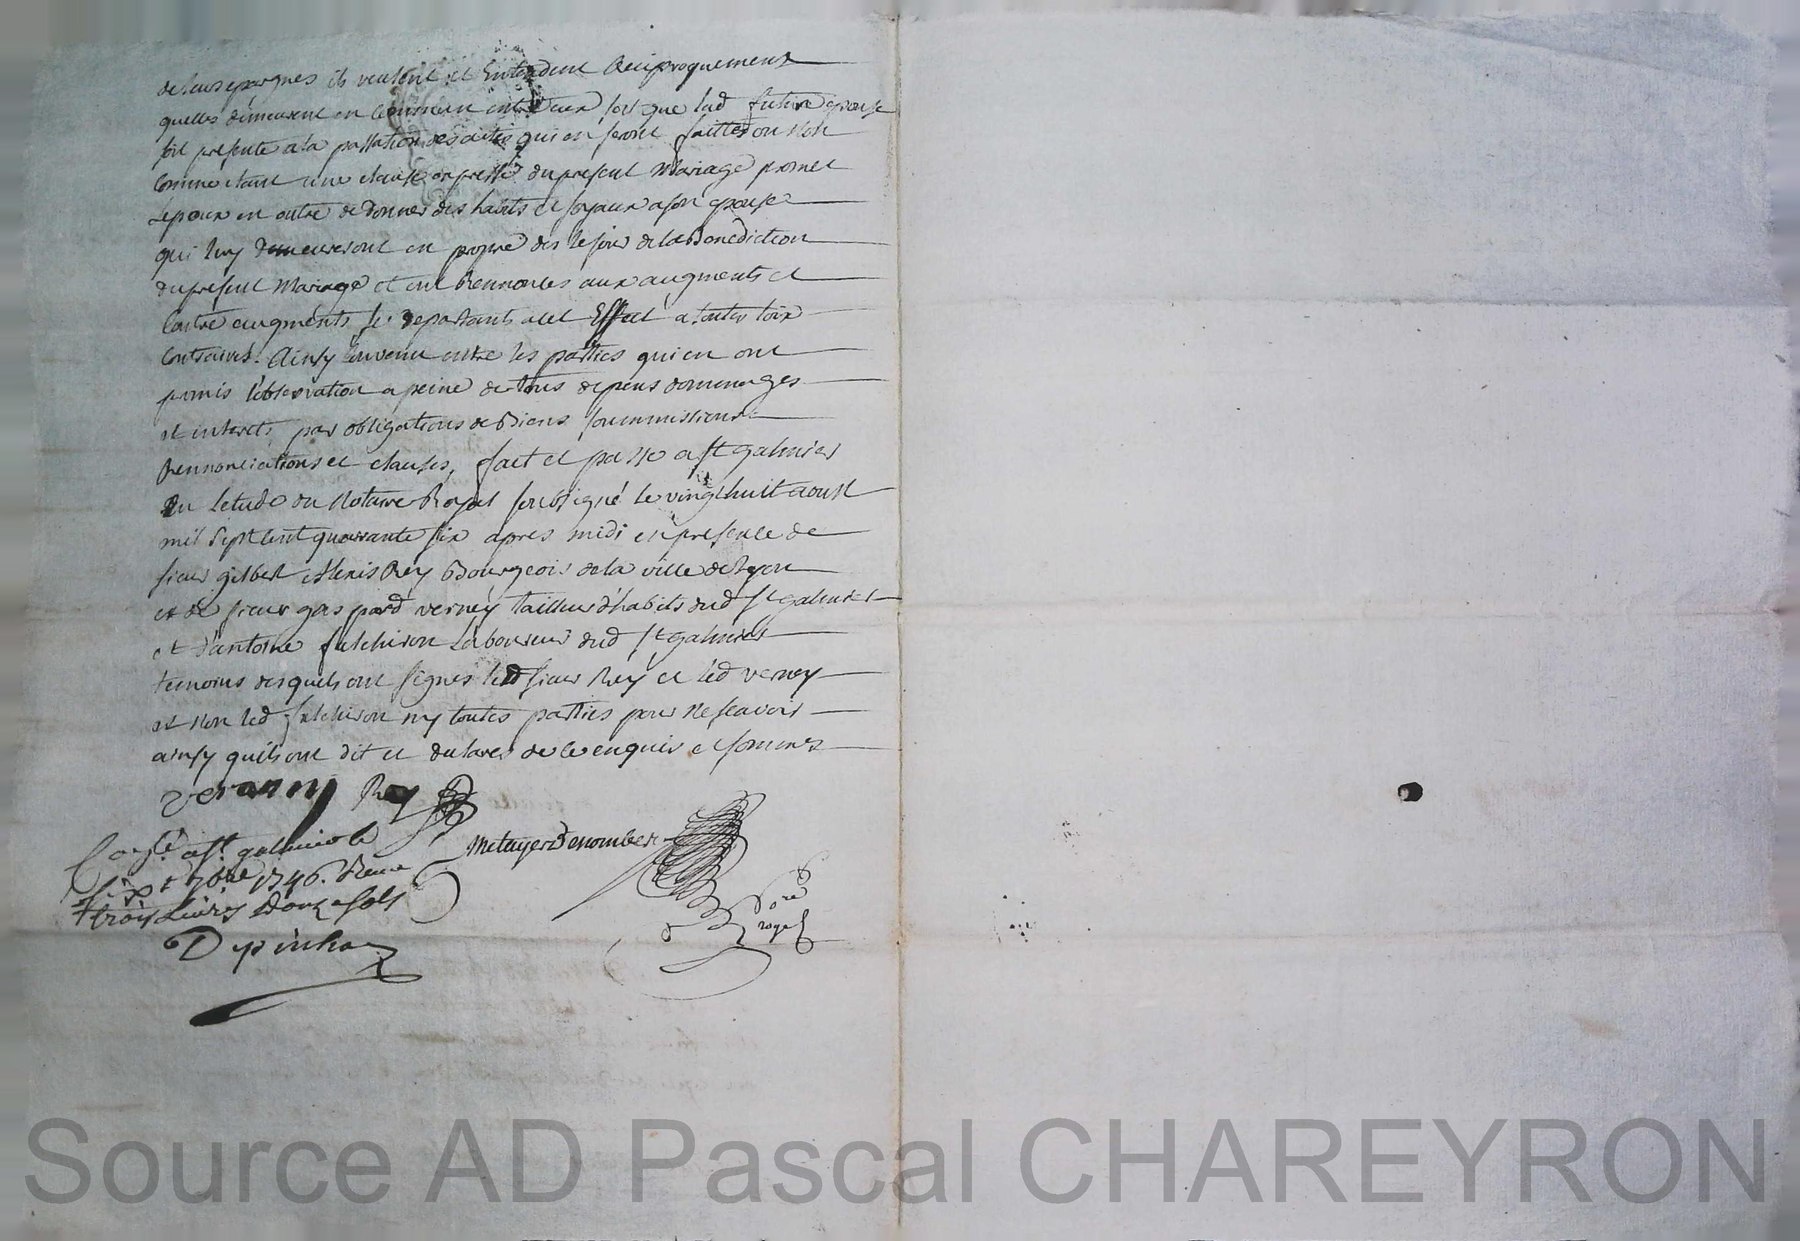 de leurs epargnes ils veulent et Entendent Reciproquement
quelles demeurent en Commun entre eux soit que lad future epouse
soit presente a la passation des actes qui en seront faittes ou Non
Comme etant une clause expresse du present Mariage promet
Lepoux en outre de donner des habits et joyaux a son epouse
qui luy demeureront en propre des le jour de la Benediction
du present Mariage et ont Rennonces aux augments et
Contre augments se departants a cet Effect a toutes loix
Contraires. Ainsy convenu entre les parties qui en ont
promis l'observation a peine de tous depens dommages
et interets par obligations de Biens soummissions
Rennonciations et clauses, fait et passé a St galmier
En l'etude du Notaire Royal soubsigné le vingt huit aoust
mil sept cent quarante six apres midi en presence de
sieur gilbert Alexis Rey Bourgeois de la ville de Lyon
et de sieur gaspard verney tailleur d'habits dud St galmier
et d'antoine fulchiron Laboureur dud St galmier
temoins desquels ont signés led sieur Rey et led verney
et Non led fulchiron ny toutes parties pour Ne scavoir
ainsy quils ont dit et declarer de ce enquis et sommés
verany Rey
Metayer Denombert
No.re royal
Con.lé a St galmier le
six 7bre 1746. Reçu
trois Livres Douze sols
Depinhac
Source AD Pascal CHAREYRON